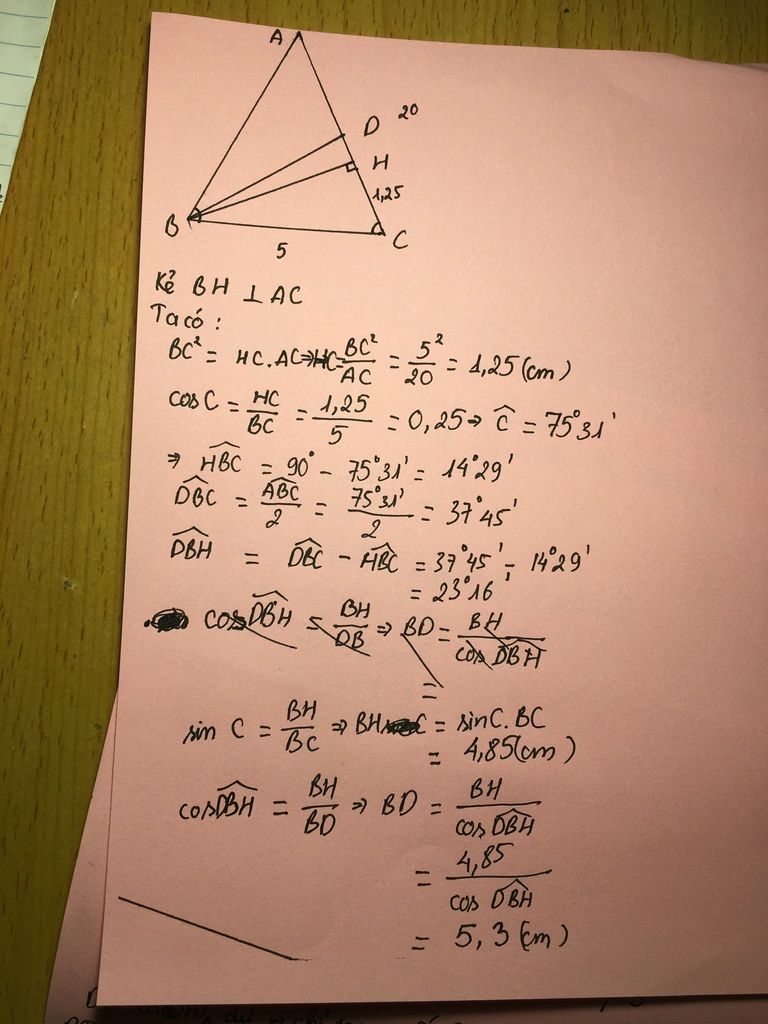 A
D 20
H
1,25
B
C
5
Kẻ BH ⊥ AC
Ta có :
BC² = HC.AC ⇒ HC = BC²/AC = 5²/20 = 1,25 (cm)
cos C = HC/BC = 1,25/5 = 0,25 ⇒ Ĉ = 75°31'
⇒ \widehat{HBC} = 90° - 75°31' = 14°29'
\widehat{DBC} = \widehat{ABC}/2 = 75°31'/2 = 37°45'
\widehat{DBH} = \widehat{DBC} - \widehat{HBC} = 37°45' - 14°29'
= 23°16'
cos \widehat{DBH} = BH/DB ⇒ BD = BH/cos \widehat{DBH}
=
sin C = BH/BC ⇒ BH = sin C. BC
= 4,85 (cm)
cos \widehat{DBH} = BH/BD ⇒ BD = BH/cos \widehat{DBH}
= 4,85/cos \widehat{DBH}
= 5,3 (cm)